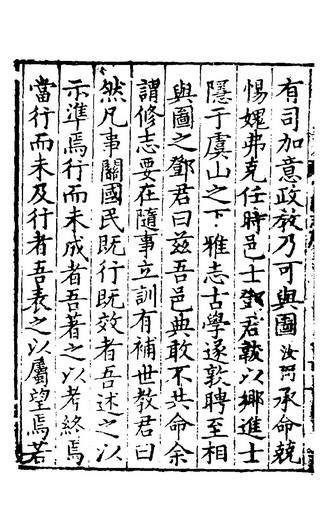 有司加意政教乃可與圖汝弼承命兢
惕媿弗克任時邑士鄧君韍以鄉進士
隱于虞山之下雅志古學遂敦聘至相
與圖之鄧君曰兹吾邑典敢不共命余
謂修志要在隨事立訓有補世教君曰
然凡事關國民既行既效者吾述之以
示準焉行而未成者吾著之以考終焉
當行而未及行者吾表之以屬望焉若